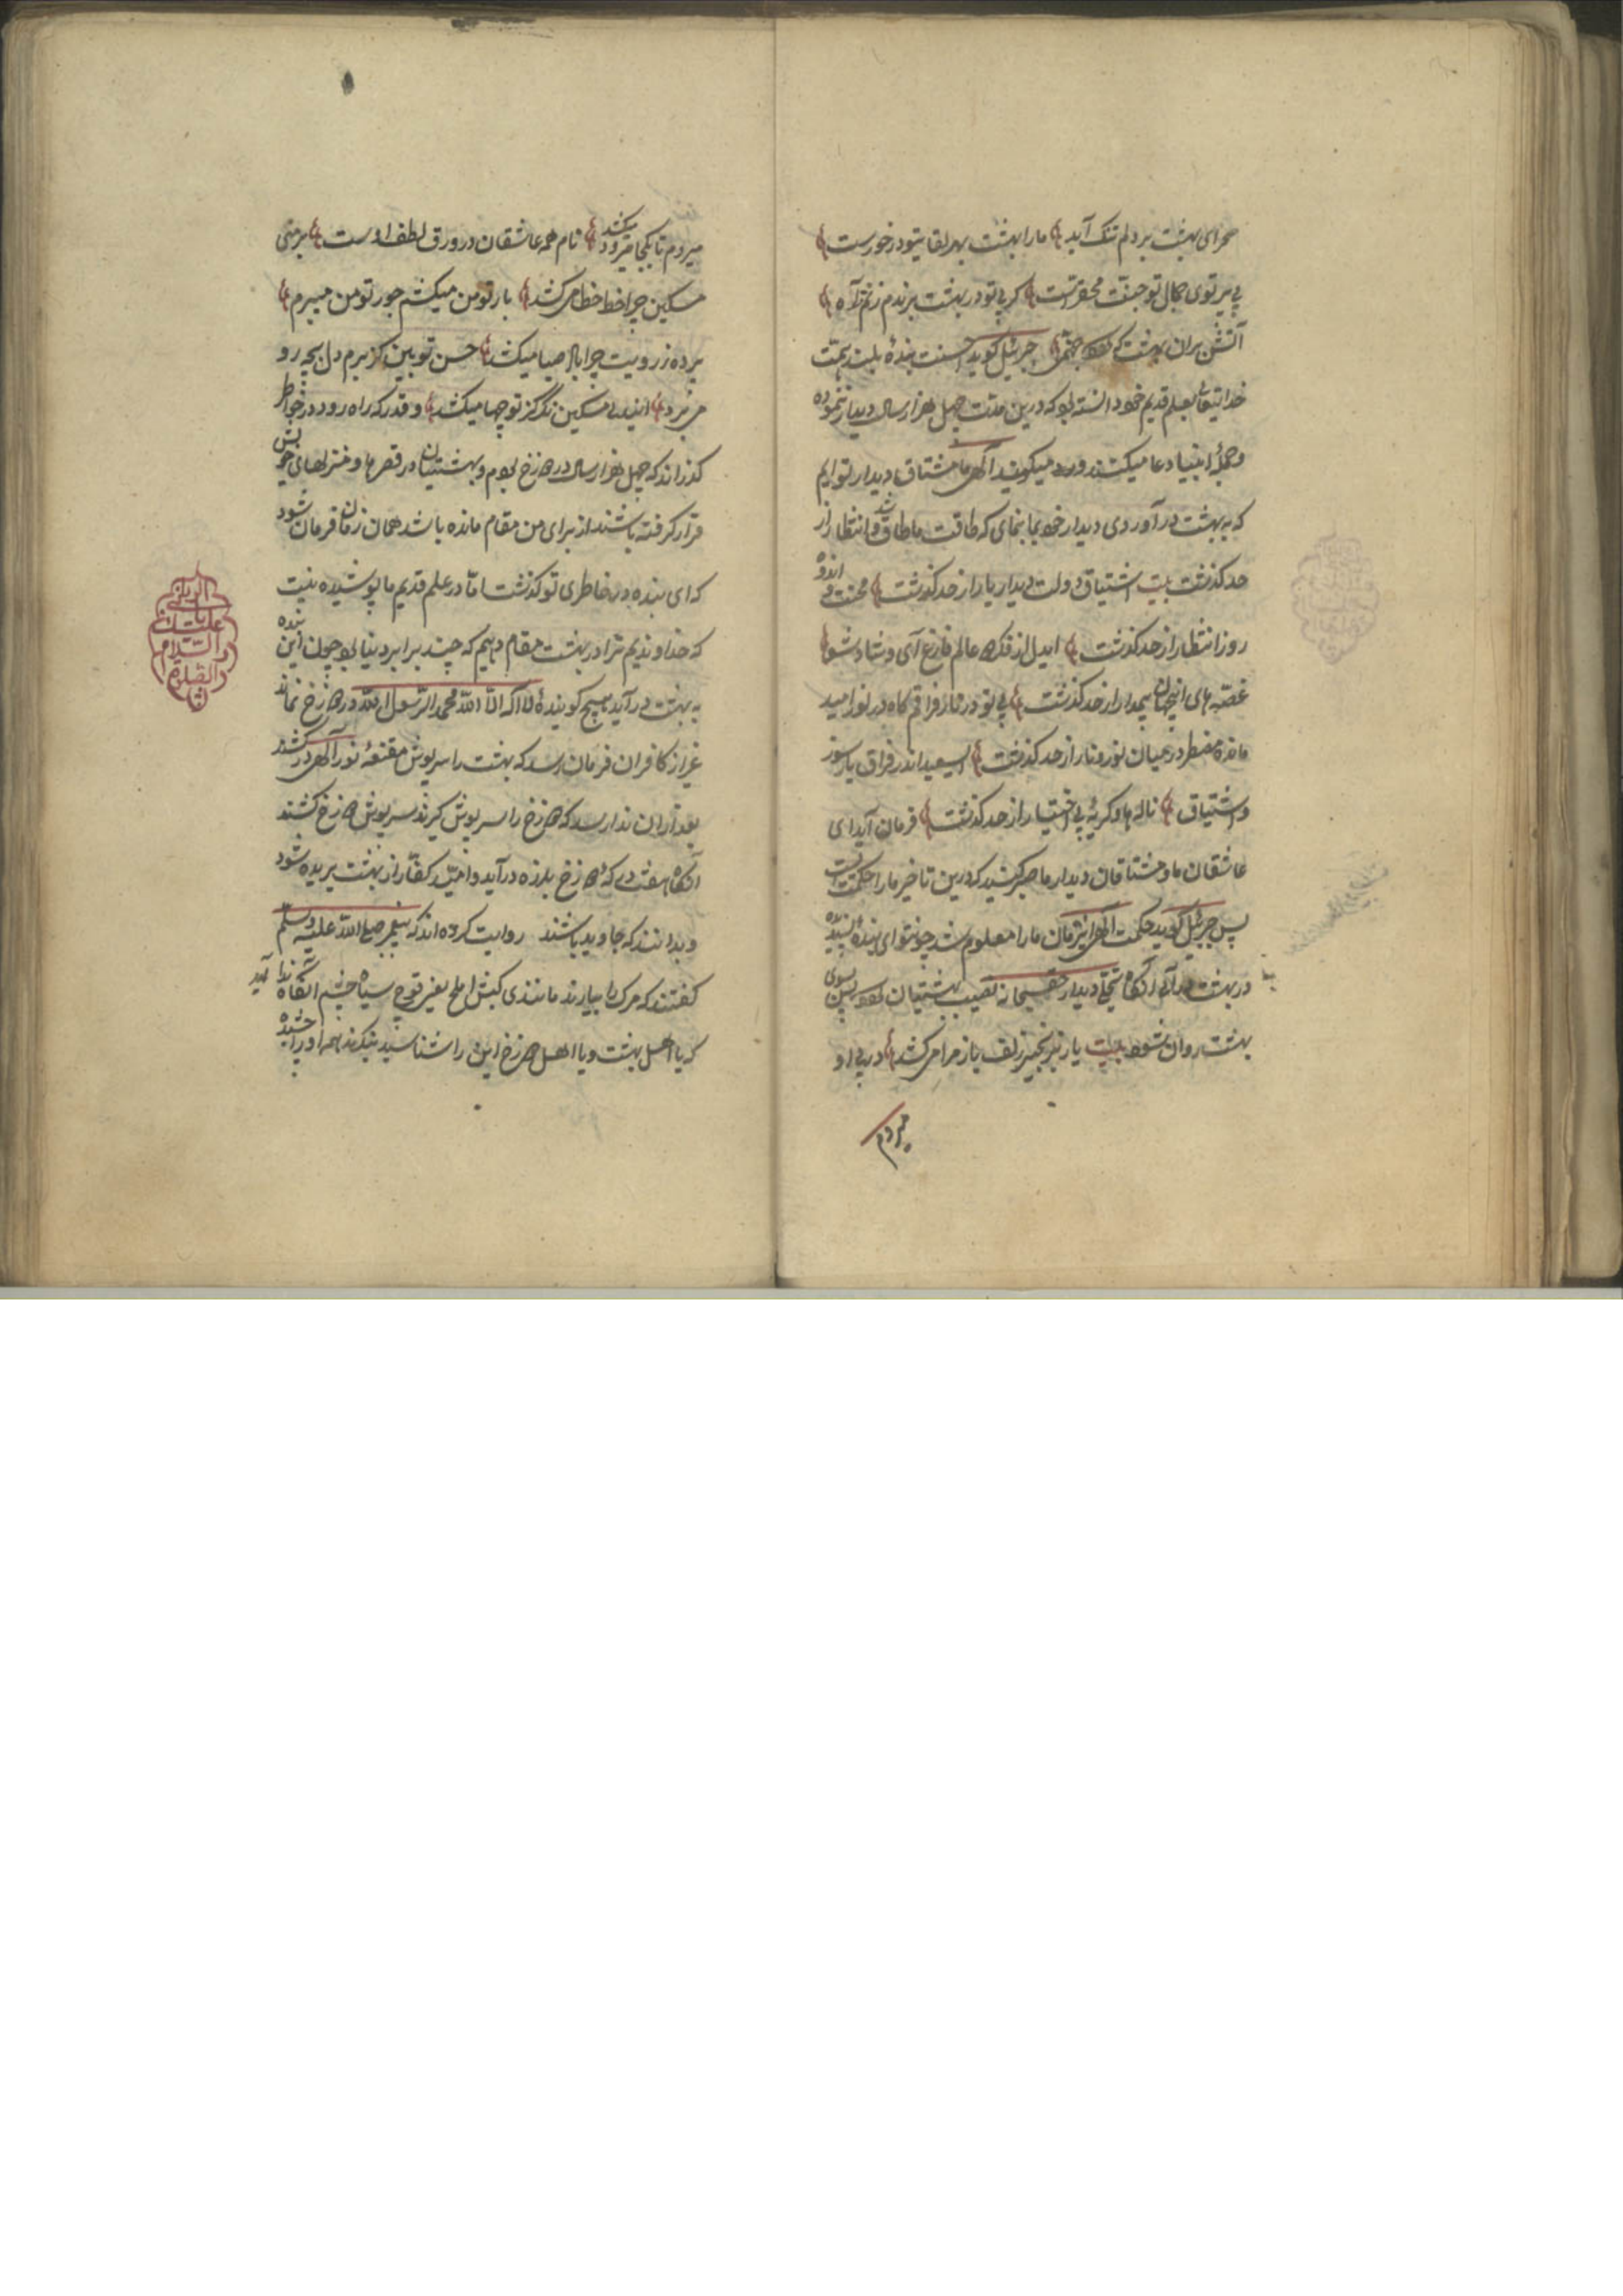 صحرای بهشت بر دلم تنک آید ما را بهشت بهر لقایتو درخورست
بی پرتوی جمال تو جنّت محقرست کر بی تو در بهشت بر ندم زنم آه
آتش بران بهشت که جهنّم جبرئیل کوید احسنت بندهٔ بلند همّت
خدایتعا بعلم قدیم خود دانسته بود که درین مدّت چهل هزار سال دیدار ننموده
و جملهٔ انبیا دعا میکنند و میکویند الهی ما مشتاق دیدار توایم
که به بهشت در آوردی دیدار خود بما بنمای که طاقت ما طاق شد و انتظار از
حد کذشت بیت اشتیاق دولت دیدار یار از حد کذشت محنت و اندوه
روز انتظار از حد کذشت ایدل از فکر عالم فارغ آی و شاد شو
غصّه های اینجهان بیمدار از حد کذشت بی تو در نار فراقم کاه در نور امید
مانده مضطر در میان نور و نار از حد کذشت ای سعید اندر فراق یار سوز
و اشتیاق ناله ها و کریهٔ بی اختیار از حد کذشت فرمان آید ای
عاشقان ما و مشتاقان دیدار ما صبر کنید که درین تاخیر ما را حکمت است
پس جبرئیل کوید حکمت الهی این زمان ما را معلوم شد چو تو ای بندهٔ پسندیده
در بهشت در آی آنکاه تجلّی دیدار حقسبحانه نصیب بهشتیان شود پس بسوی
بهشت روان شود بیت یار بزنجیر زلف باز مرا میکشد در پی او
میروم
میروم تا بکجا میرود میکشد نام همه عاشقان در ورق لطف اوست بر منی
مسکین چرا خط خطا میکشد بار تو من میکشم جور تو من میبرم
پرده ز رویت چرا باد صبا میکشد حسن تو بین کز برم دل بچه رو
میبرد ایندل مسکین نکر کز تو چها میکشد و قدر که راه رود در خواطر
کذراند که چهل هزار سال در دوزخ بودم و بهشتیان در قصرها و منزلهای خویش
قرار کرفته باشند از برای من مقام مانده باشد همان زمان فرمان شود
که ای بنده در خاطری تو کذشت امّا در علم قدیم ما پوشیده نیست
که خداوندیم ترا در بهشت مقام دهیم که چند برابر دنیا بود چون این بنده
به بهشت در آید هیچ کویندهٔ لا اله الا الله محمد الرّسول الله در دوزخ نماند
غیر از کافران فرمان رسد که بهشت را سرپوش مقنعهٔ نور الهی درکشند
بعد از ان ندا رسد که دوزخ را سرپوش کیرند سرپوش دوزخ کشند
آنکاه هفت در که دوزخ بلرزه در آید و امید کفّار از بهشت بریده شود
و بدانند که جاوید باشند روایت کرده اند که پیغمبر صلی الله علیه وسلّم
کفتند که مرک را بیارند مانندی کبش املح یعنی قوچ سیاه چشم آنکاه ندا آید
که یا اهل بهشت و یا اهل دوزخ این را شناسید بنکرند همه او را